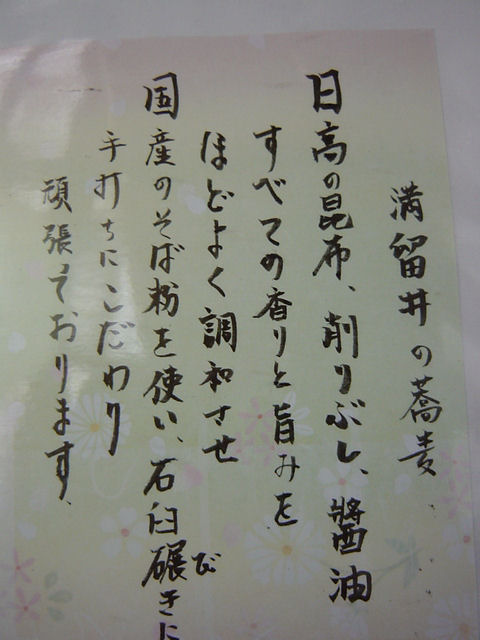 溝留井の蕎麦
日高の昆布、削りぶし、醤油
すべての香りと旨みを
ほどよく調和させ
国産のそば粉を使い、石臼碾びきに
手打ちにこだわり
頑張ております、